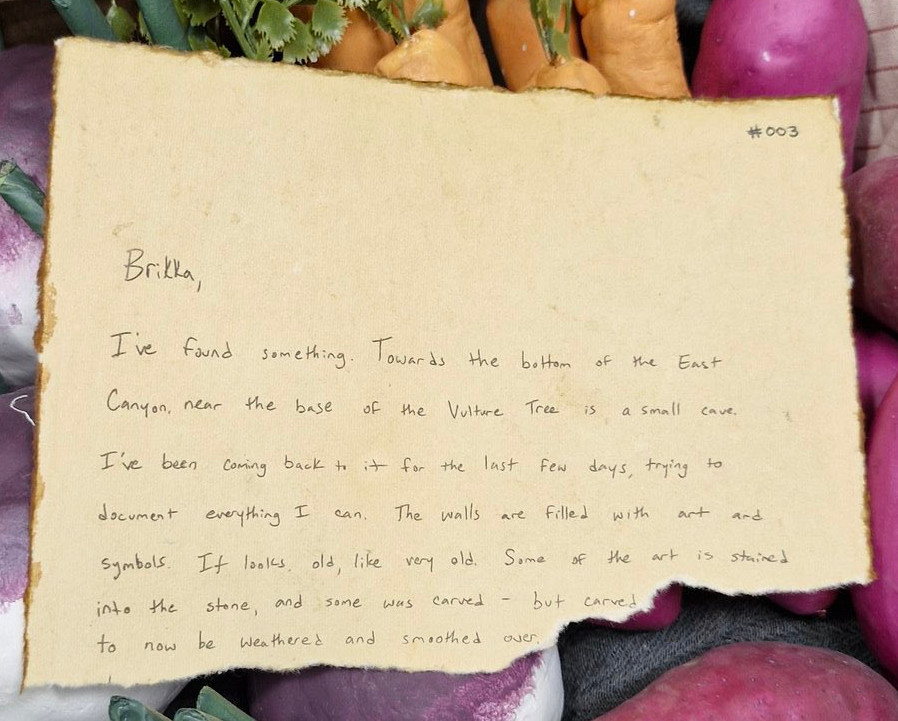 #003
Brikka,
I've found something. Towards the bottom of the East
Canyon, near the base of the Vulture Tree is a small cave.
I've been coming back to it for the last few days, trying to
document everything I can. The walls are filled with art and
symbols. It looks, old, like very old. Some of the art is stained
into the stone, and some was carved - but carved
to now be weathered and smoothed over.